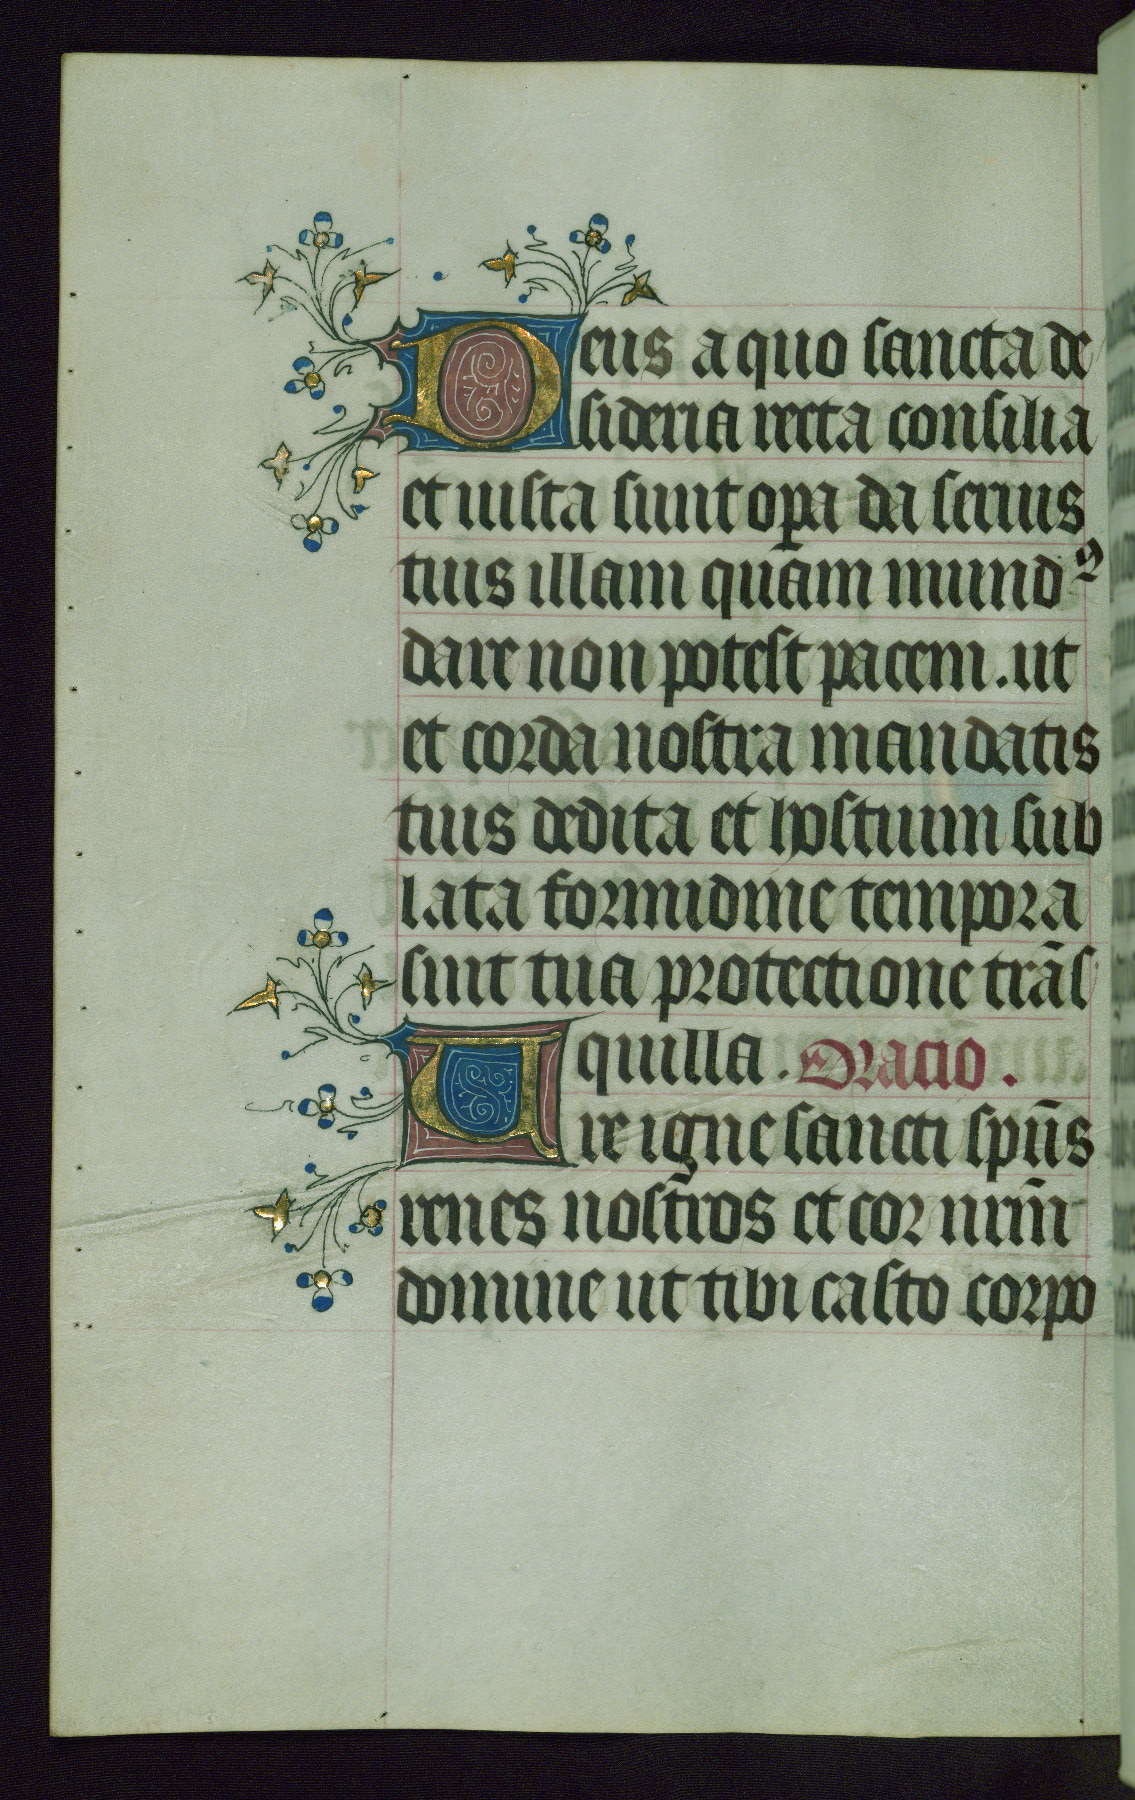 Deus a quo sancta de
sideria recta consilia
et iusta sunt opa da seruis
tuis illam quam mundꝰ
dare non potest pacem. ut
et corda nostra mandatis
tuis dedita et hostium sub
lata formidine tempora
sint tua protectione trās
quilla. Oratio.
Ure igne sancti spūs
renes nostros et cor nrm̄
domine ut tibi casto corpo